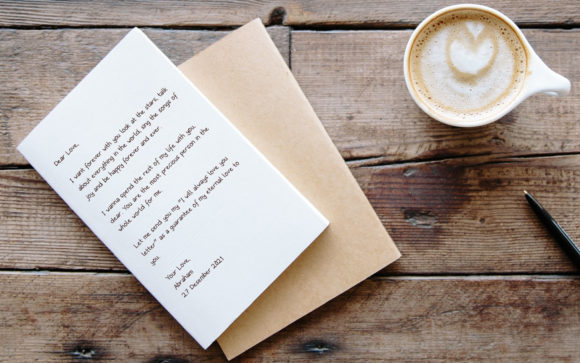 Dear Love,
I want forever with you look at the stars, talk
about everything in the world, sing the songs of
joy and be happy forever and ever
I wanna spend the rest of my life with you,
dear. You are the most precious person in the
whole world for me.
Let me send you my "I will always love you
letter" as a guarantee of my eternal love to
you.
Your Love,
Abraham
27 Desember 2021